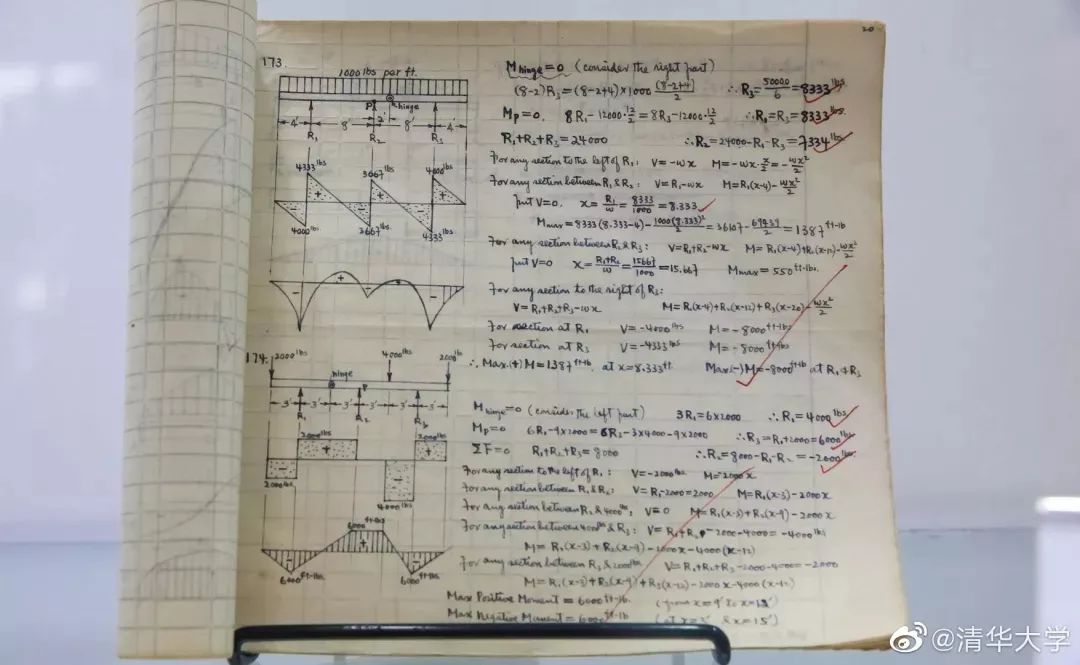 20
173.
1000 lbs per ft.
P
hinge
2'
4' 8' 8' 4'
R₁ R₂ R₃
4333 lbs
3667 lbs
4000 lbs
4000 lbs
3667 lbs
4333 lbs
+ + +
- + + -
M hinge = 0 (consider the right part)
(8-2)R₃ = (8-2+4)×1000 (8-2+4)/2 ∴ R₃ = 50000/6 = 8333 lbs
Mp = 0. 8R₁ - 12000·12/2 = 8R₃ - 12000·12/2 ∴ R₁ = R₃ = 8333 lbs.
R₁+R₂+R₃ = 24000 ∴ R₂ = 24000-R₁-R₃ = 7334 lbs
For any section to the left of R₁: V = -wx M = -wx·x/2 = -wx²/2
For any section between R₁ & R₂: V = R₁-wx M = R₁(x-4) - wx²/2
put V=0. x = R₁/w = 8333/1000 = 8.333
Mmax = 8333(8.333-4) - 1000(8.333)²/2 = 36107 - 69439/2 = 1387 ft-lb
For any section between R₂ & R₃: V = R₁+R₂-wx M = R₁(x-4)+R₂(x-12) - wx²/2
put V=0 x = R₁+R₂/w = 15667/1000 = 15.667 Mmax = 550 ft-lbs.
For any section to the right of R₃:
V = R₁+R₂+R₃-wx M = R₁(x-4)+R₂(x-12)+R₃(x-20) - wx²/2
For section at R₁ V = -4000 lbs M = -8000 ft-lbs
For section at R₃ V = -4333 lbs M = -8000 ft-lbs
∴ Max.(+) M = 1387 ft-lb. at x = 8.333 ft. Max(-) M = -8000 ft-lb at R₁ & R₃
174.
2000 lbs 4000 lbs 2000 lb
hinge
P
3' 3' 3' 3' 3' 3'
R₁ R₂ R₃
2000 lbs
+
2000 lbs
2000 lbs
4000 lbs
6000 ft-lbs
+
- -
6000 ft-lbs. 6000 ft-lbs.
M hinge = 0 (consider the left part) 3R₁ = 6×2000 ∴ R₁ = 4000 lbs
Mp = 0 6R₁ - 9×2000 = 6R₃ - 3×4000 - 9×2000 ∴ R₃ = R₁+2000 = 6000 lbs
ΣF = 0 R₁+R₂+R₃ = 8000 ∴ R₂ = 8000-R₁-R₂ = -2000 lbs
For any section to the left of R₁: V = -2000 lbs. M = -2000x
For any section between R₁ & R₂: V = R₁-2000 = 2000 M = R₁(x-3) - 2000x
For any section between R₂ & 4000 lbs: V = 0 M = R₁(x-3)+R₂(x-9) - 2000x
For any section between 4000 lbs & R₃: V = R₁+R₂-2000-4000 = -4000 lbs
M = R₁(x-3)+R₂(x-9) - 2000x - 4000(x-12)
For any section between R₃ & 2000 lbs. V = R₁+R₂+R₃-2000-4000 = -2000
M = R₁(x-3)+R₂(x-9)+R₃(x-12) - 2000x - 4000(x-12)
Max Positive Moment = 6000 ft-lb. (from x=9' to x=12')
Max Negative Moment = 6000 ft-lb (at x=3' & x=15')
@清华大学